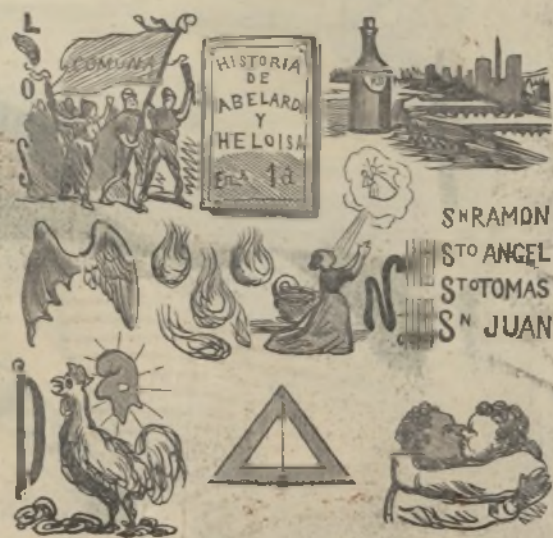 L
O
COMUNA
HISTORIA
DE
ABELARDO
Y
HELOISA
Ena 1a
N
SN RAMON
STO ANGEL
STO TOMAS
SN JUAN
D